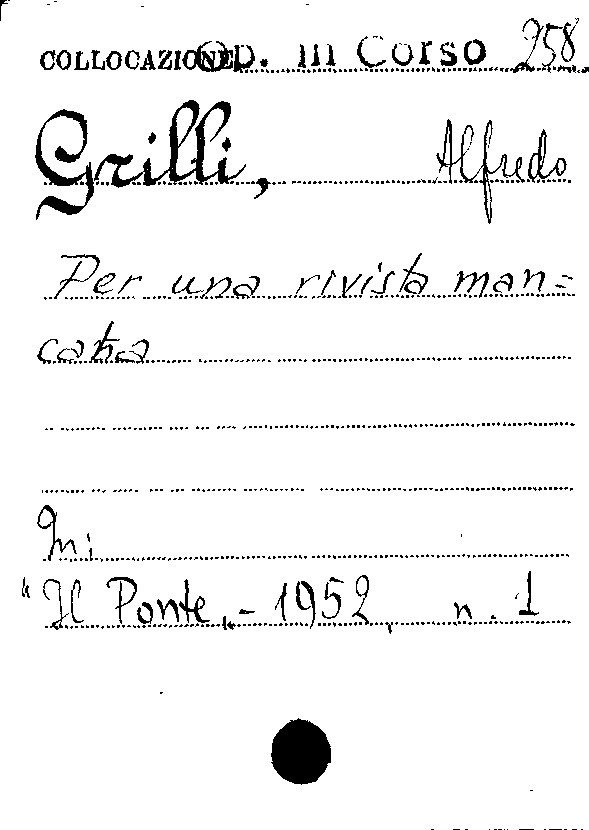 COLLOCAZIONE Op. in Corso 258
Grilli, Alfredo
Per una rivista man=
cata
In:
"Il Ponte„ - 1952, n. 1